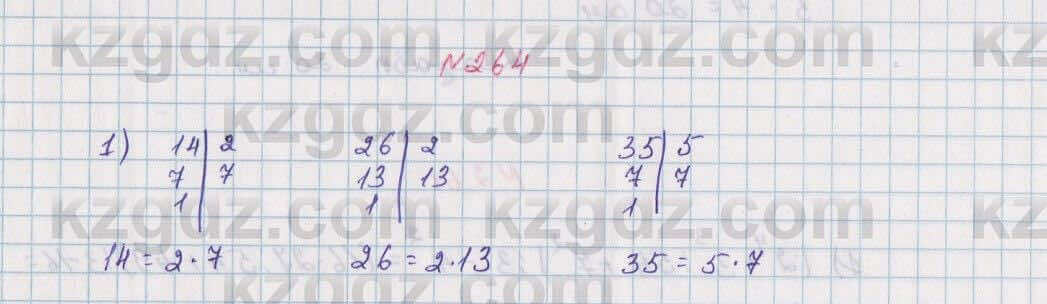 kzgdz.com kzgdz.com kz
№264
kzgdz.com
1) 14|2 26|2 35|5
7|7 13|13 7|7
1| 1| 1|
kzgdz.com kzgdz.com kz
14 = 2·7 26 = 2·13 35 = 5·7
kzgdz.com